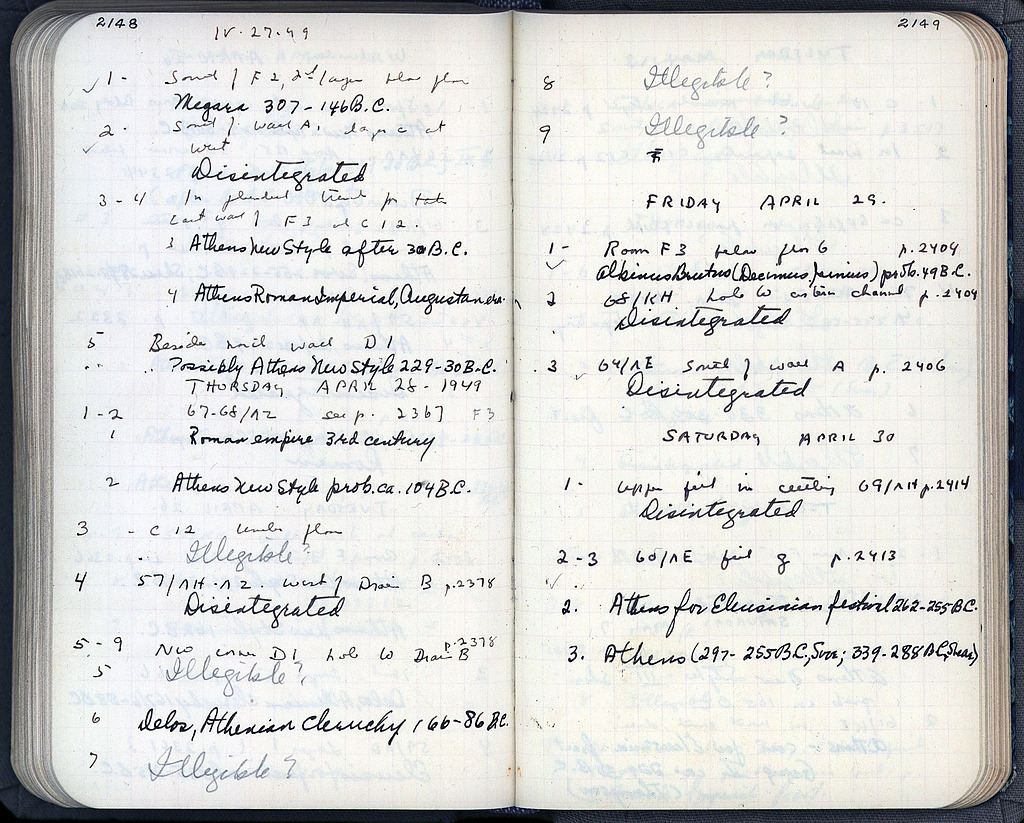 2148
IV-27-49
1- South / F2, 2nd layer below floor
Megara 307-146 B.C.
2- South / wall A, layer at
west
Disintegrated
3-4 In
East wall / F3 C12.
3 Athens New Style after 30 B.C.
4 Athens Roman Imperial, Augustan era
5 Beside north wall D1
Possibly Athens New Style 229-30 B.C.
THURSDAY APRIL 28-1949
1-2 67-68/ΛZ see p. 2367 F3
1 Roman empire 3rd century
2 Athens New Style prob. ca. 104 B.C.
3 - C12 under floor
Illegible?
4 57/ΛH-ΛZ west / Drain B p.2378
Disintegrated
5-9 NW corner D1 hole W Drain B p.2378
5 Illegible?
6 Delos, Athenian Cleruchy 166-86 B.C.
7 Illegible?
2149
8 Illegible?
9 Illegible?
FRIDAY APRIL 29.
1- Room F3 below floor 6 p.2404
Albinus Brutus (Decimus Junius) prob. 49 B.C.
2 68/KH hole W channel p.2404
Disintegrated
3 64/ΛE South / wall A p.2406
Disintegrated
SATURDAY APRIL 30
1- upper fill in 69/ΛH p.2414
Disintegrated
2-3 60/ΛE fill p.2413
2. Athens for Eleusinian festival 262-255 B.C.
3. Athens (297-255 B.C., Svor.; 339-288 B.C., Shear)